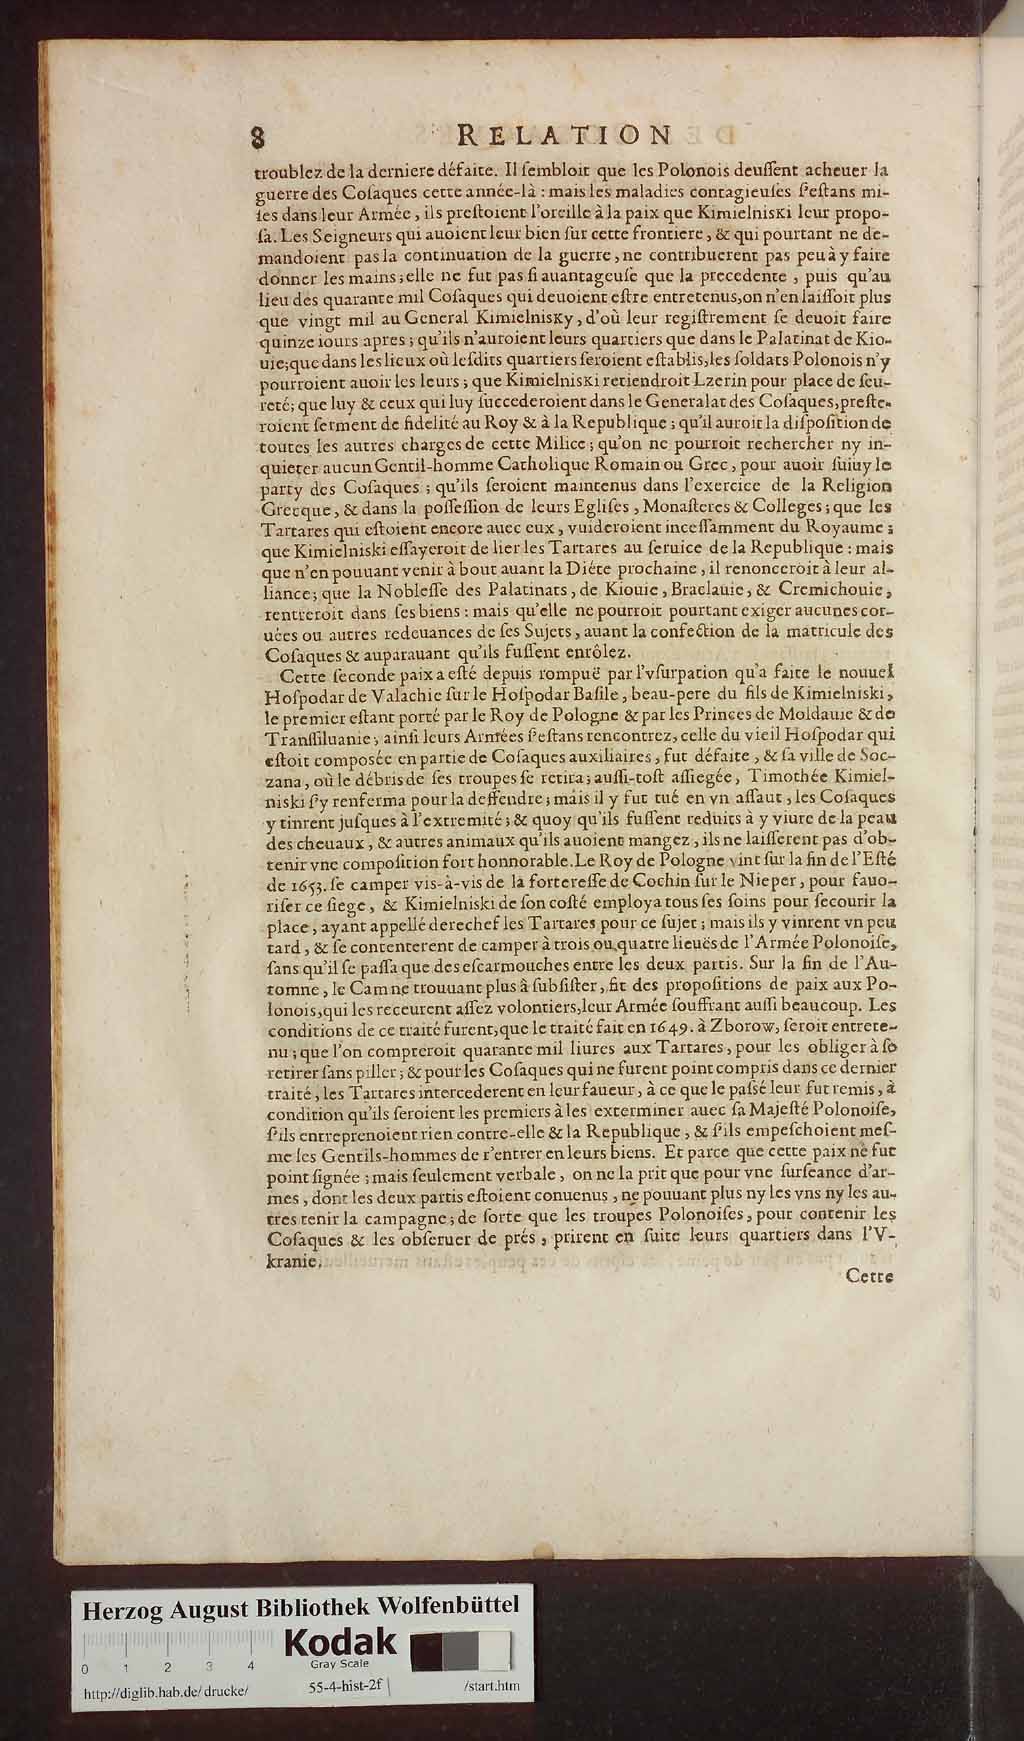 8 RELATION
troublez de la derniere défaite. Il ſembloit que les Polonois deuſſent acheuer la
guerre des Coſaques cette année-là : mais les maladies contagieuſes ſ'eſtans mi-
ſes dans leur Armée, ils preſtoient l'oreille à la paix que Kimielniski leur propo-
ſa. Les Seigneurs qui auoient leur bien ſur cette frontiere, & qui pourtant ne de-
mandoient pas la continuation de la guerre, ne contribuerent pas peu à y faire
donner les mains; elle ne fut pas ſi auantageuſe que la precedente, puis qu'au
lieu des quarante mil Coſaques qui deuoient eſtre entretenus, on n'en laiſſoit plus
que vingt mil au General Kimielnisky, d'où leur regiſtrement ſe deuoit faire
quinze iours apres; qu'ils n'auroient leurs quartiers que dans le Palatinat de Kio-
uie; que dans les lieux où leſdits quartiers ſeroient eſtablis, les ſoldats Polonois n'y
pourroient auoir les leurs; que Kimielniski retiendroit Lzerin pour place de ſeu-
reté; que luy & ceux qui luy ſuccederoient dans le Generalat des Coſaques, preſte-
roient ſerment de fidelité au Roy & à la Republique; qu'il auroit la diſpoſition de
toutes les autres charges de cette Milice; qu'on ne pourroit rechercher ny in-
quieter aucun Gentil-homme Catholique Romain ou Grec, pour auoir ſuiuy le
party des Coſaques; qu'ils ſeroient maintenus dans l'exercice de la Religion
Grecque, & dans la poſſeſſion de leurs Egliſes, Monaſteres & Colleges; que les
Tartares qui eſtoient encore auec eux, vuideroient inceſſamment du Royaume;
que Kimielniski eſſayeroit de lier les Tartares au ſeruice de la Republique : mais
que n'en pouuant venir à bout auant la Diéte prochaine, il renonceroit à leur al-
liance; que la Nobleſſe des Palatinats, de Kiouie, Braclauie, & Cremichouie,
rentreroit dans ſes biens : mais qu'elle ne pourroit pourtant exiger aucunes cor-
uées ou autres redeuances de ſes Sujets, auant la confection de la matricule des
Coſaques & auparauant qu'ils fuſſent enrôlez.
Cette ſeconde paix a eſté depuis rompuë par l'vſurpation qu'a faite le nouuel
Hoſpodar de Valachie ſur le Hoſpodar Baſile, beau-pere du fils de Kimielniski,
le premier eſtant porté par le Roy de Pologne & par les Princes de Moldauie & de
Tranſſiluanie, ainſi leurs Armées ſ'eſtans rencontrez, celle du vieil Hoſpodar qui
eſtoit compoſée en partie de Coſaques auxiliaires, fut défaite, & ſa ville de Soc-
zana, où le débris de ſes troupes ſe retira; auſſi-toſt aſſiegée, Timothée Kimiel-
niski ſ'y renferma pour la deffendre; mais il y fut tué en vn aſſaut, les Coſaques
y tinrent juſques à l'extremité; & quoy qu'ils fuſſent reduits à y viure de la peau
des cheuaux, & autres animaux qu'ils auoient mangez, ils ne laiſſerent pas d'ob-
tenir vne compoſition fort honnorable. Le Roy de Pologne vint ſur la fin de l'Eſté
de 1653. ſe camper vis-à-vis de la fortereſſe de Cochin ſur le Nieper, pour fauo-
riſer ce ſiege, & Kimielniski de ſon coſté employa tous ſes ſoins pour ſecourir la
place, ayant appellé derechef les Tartares pour ce ſujet; mais ils y vinrent vn peu
tard, & ſe contenterent de camper à trois ou quatre lieuës de l'Armée Polonoiſe,
ſans qu'il ſe paſſa que des eſcarmouches entre les deux partis. Sur la fin de l'Au-
tomne, le Cam ne trouuant plus à ſubſiſter, fit des propoſitions de paix aux Po-
lonois, qui les receurent aſſez volontiers, leur Armée ſouffrant auſſi beaucoup. Les
conditions de ce traité furent, que le traité fait en 1649. à Zborow, ſeroit entrete-
nu; que l'on compteroit quarante mil liures aux Tartares, pour les obliger à ſe
retirer ſans piller; & pour les Coſaques qui ne furent point compris dans ce dernier
traité, les Tartares intercederent en leur faueur, à ce que le paſſé leur fut remis, à
condition qu'ils ſeroient les premiers à les exterminer auec ſa Majeſté Polonoiſe,
ſ'ils entreprenoient rien contre-elle & la Republique, & ſ'ils empeſchoient meſ-
me ſes Gentils-hommes de r'entrer en leurs biens. Et parce que cette paix ne fut
point ſignée; mais ſeulement verbale, on ne la prit que pour vne ſurſeance d'ar-
mes, dont les deux partis eſtoient conuenus, ne pouuant plus ny les vns ny les au-
tres tenir la campagne; de ſorte que les troupes Polonoiſes, pour contenir les
Coſaques & les obſeruer de prés, prirent en ſuite leurs quartiers dans l'V-
kranie.
Cette
Herzog August Bibliothek Wolfenbüttel
Kodak
Gray Scale
0 1 2 3 4
http://diglib.hab.de/drucke/ 55-4-hist-2f /start.htm